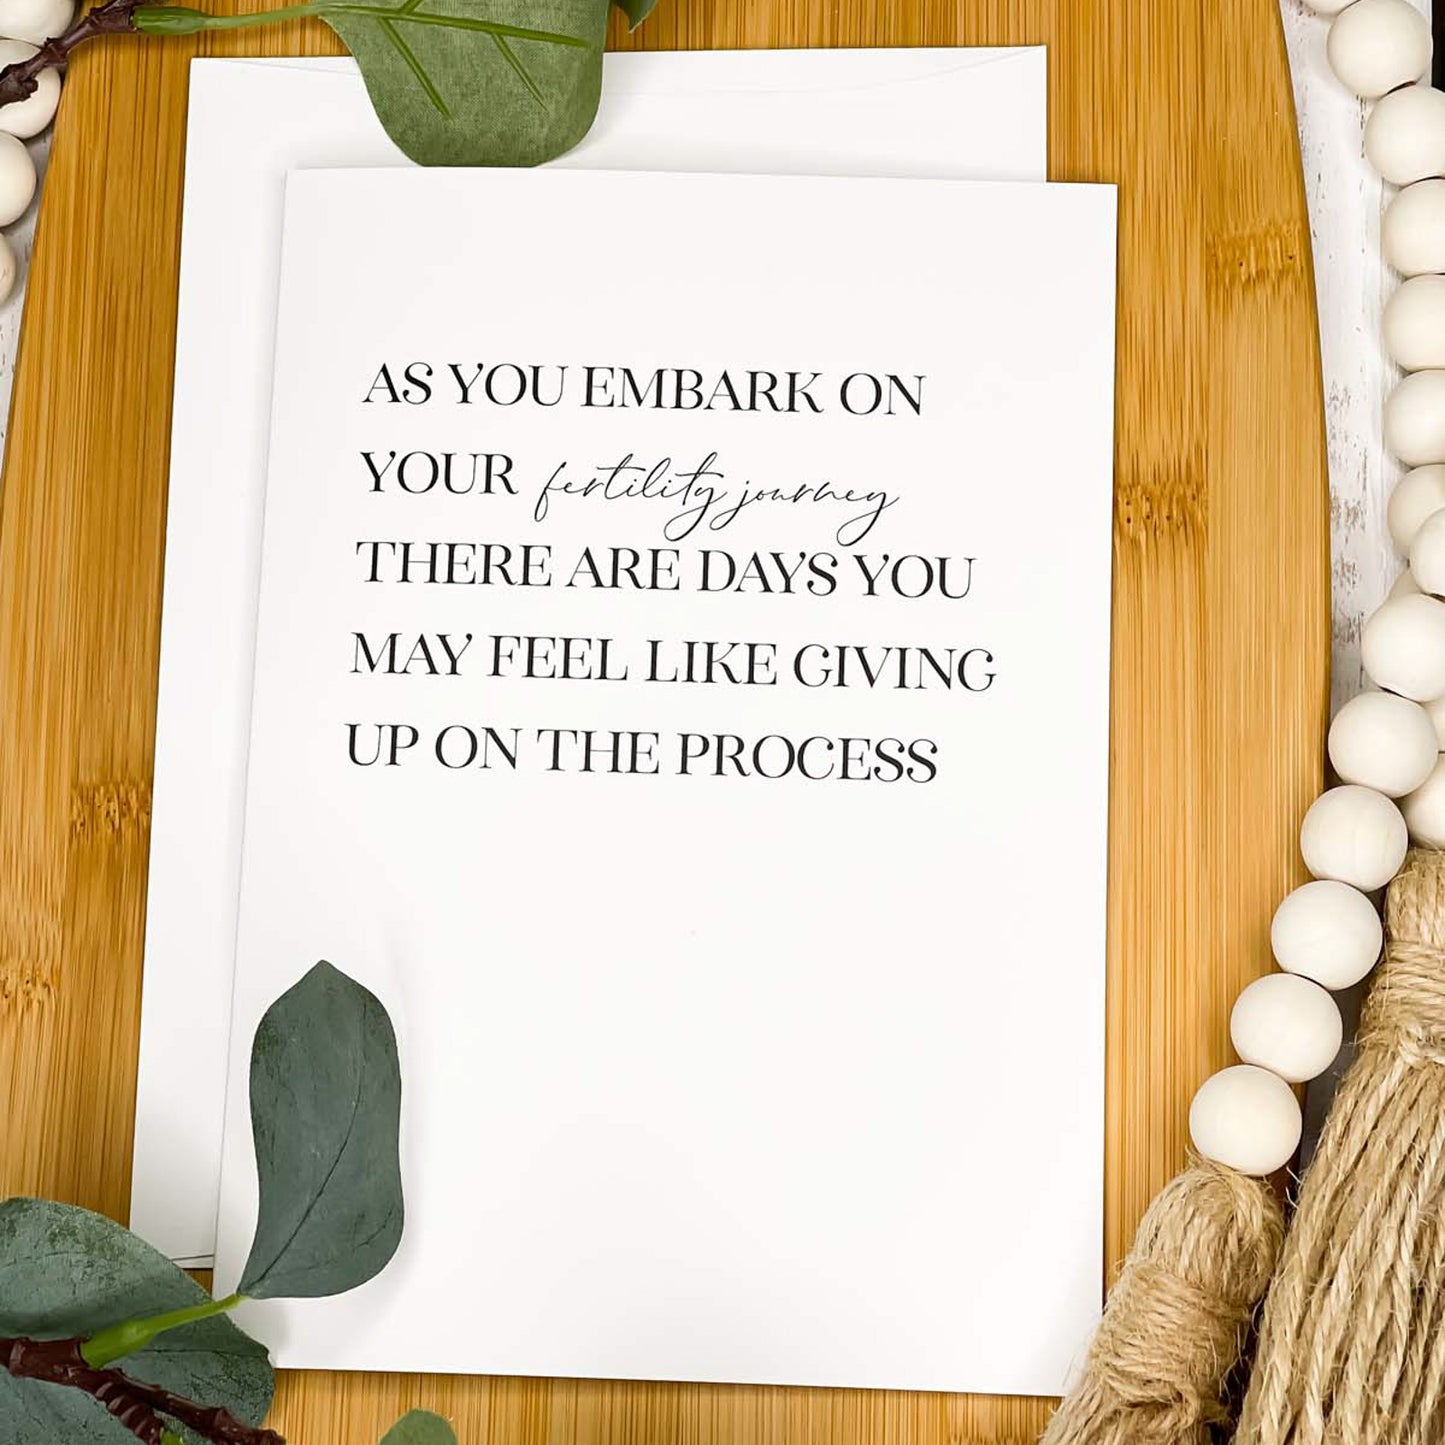 AS YOU EMBARK ON
YOUR fertility journey
THERE ARE DAYS YOU
MAY FEEL LIKE GIVING
UP ON THE PROCESS